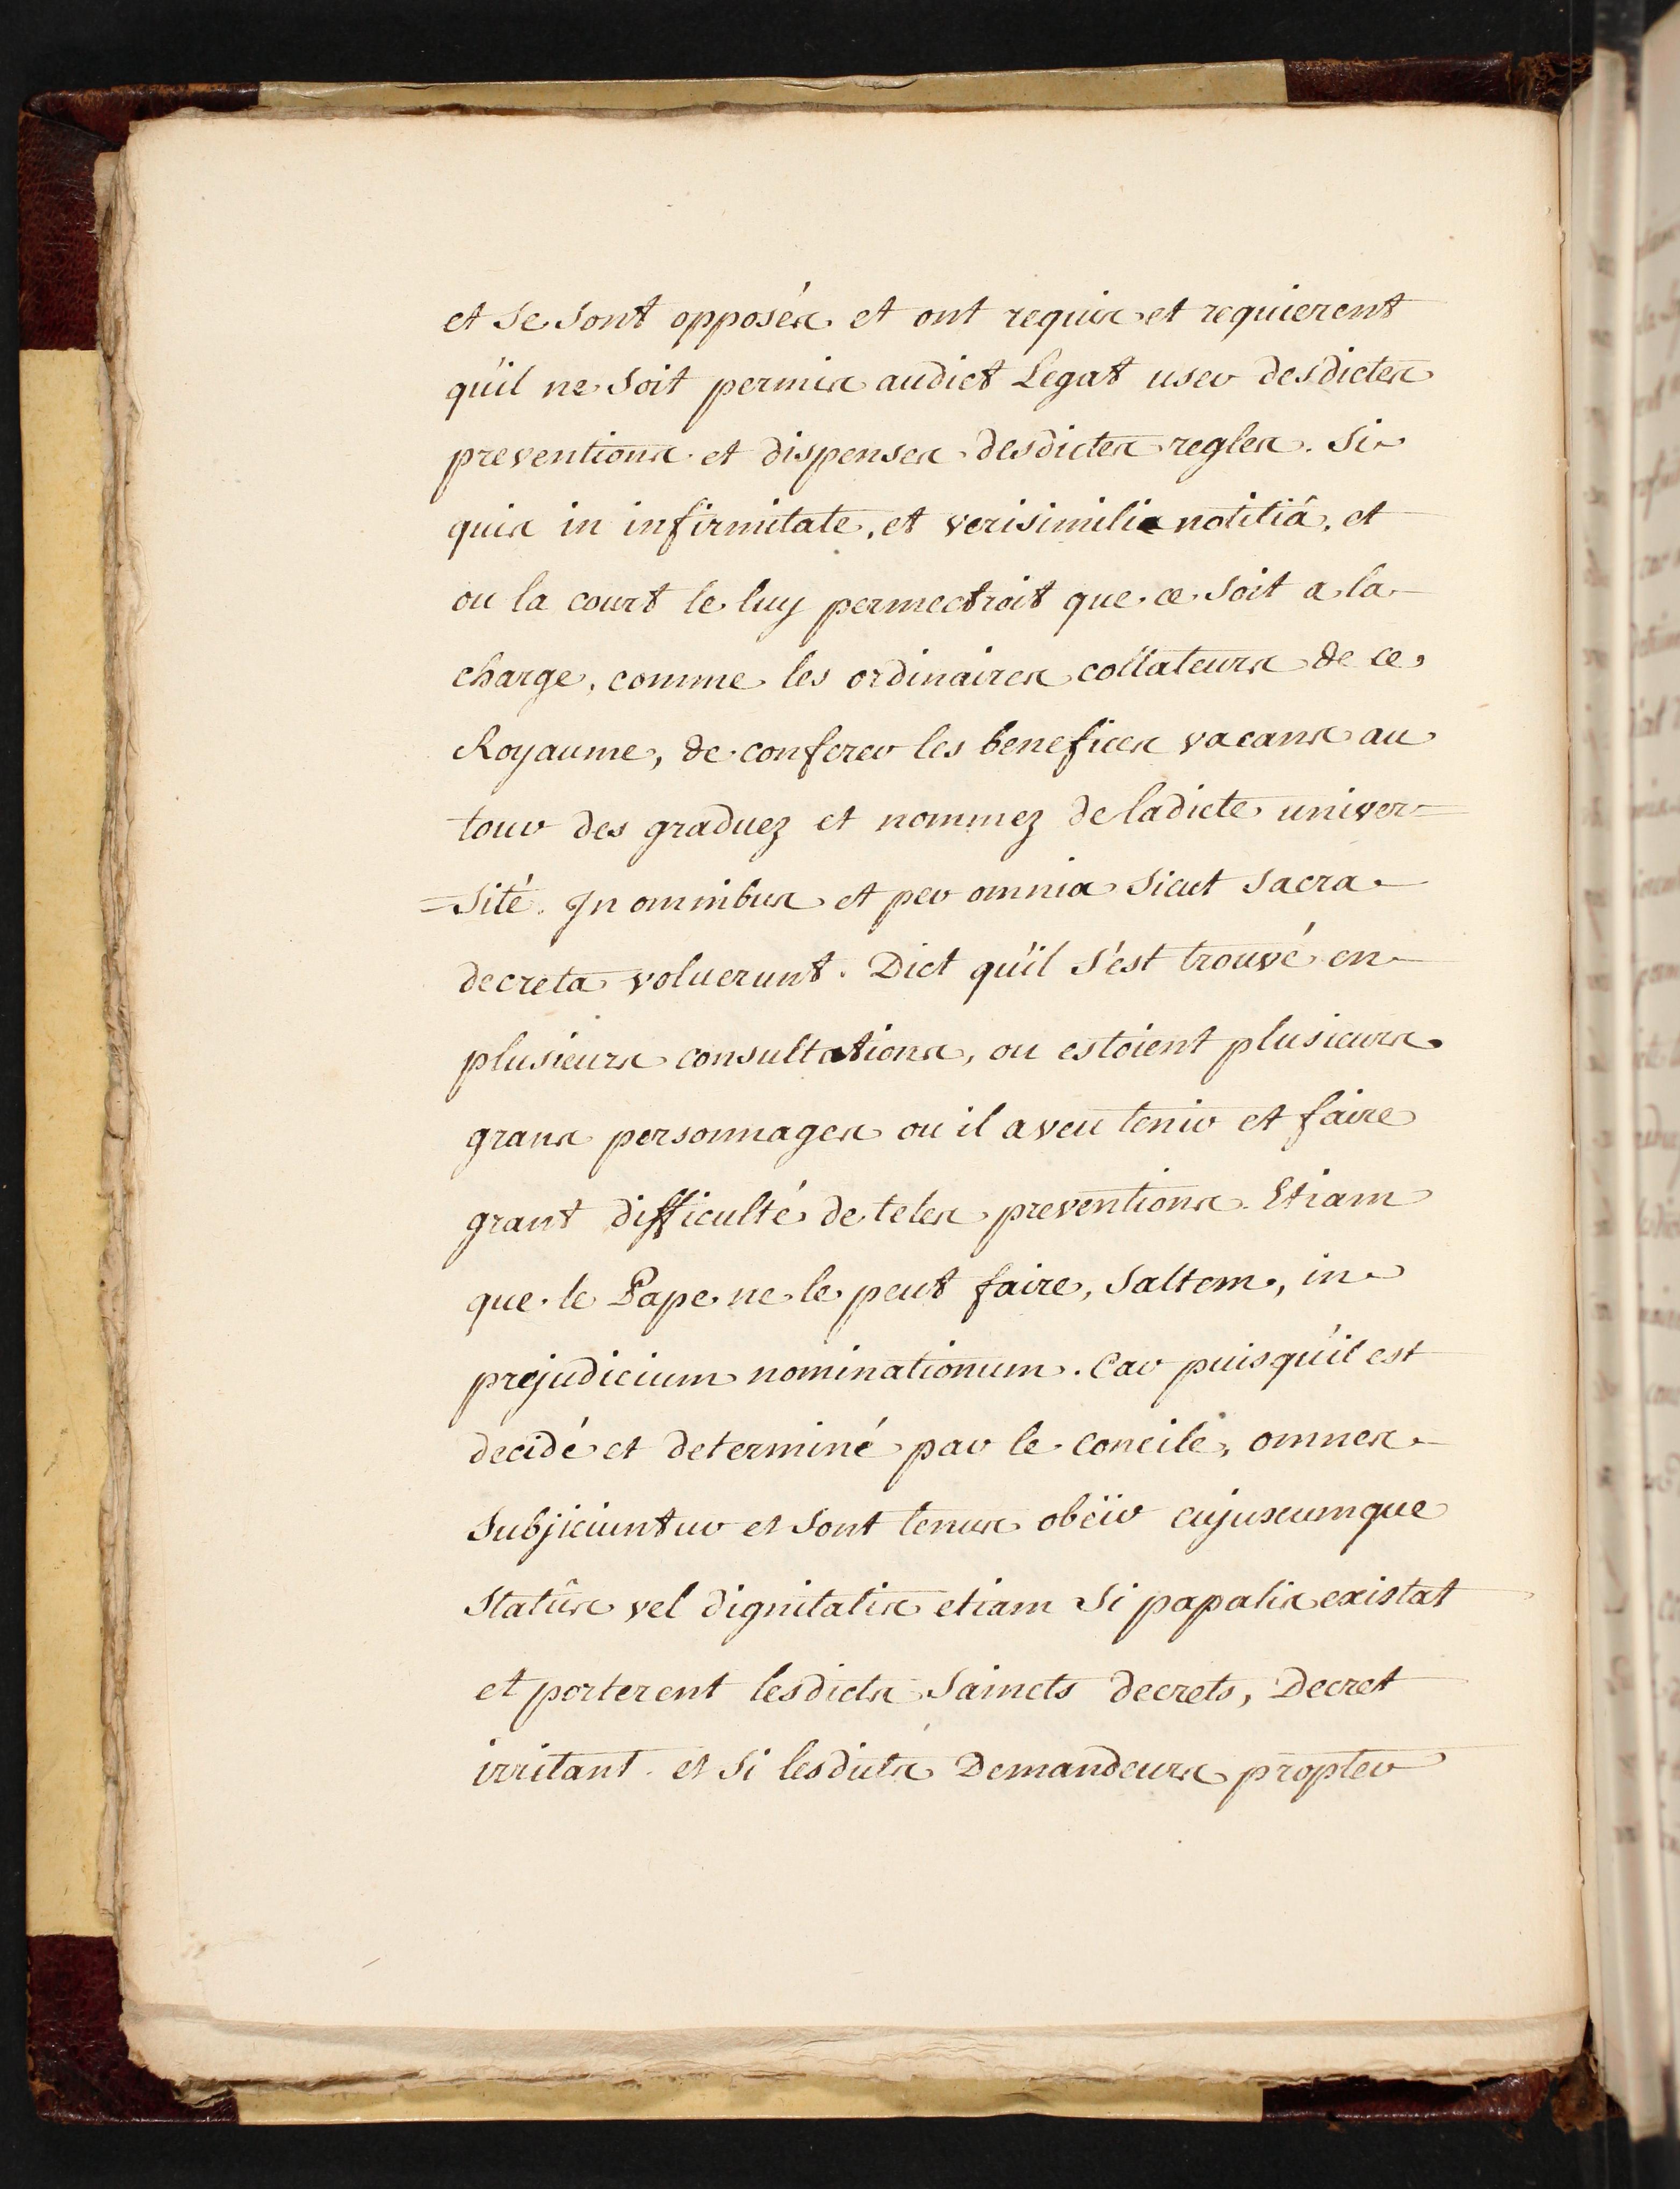 et se sont opposés et ont requis et requierent
qu'il ne soit permis audict Legat user desdictes
preventions et dispenses desdictes regles. Si
quis in infirmitate, et verisimilis notitiâ, et
ou la court le luy permectroit que ce soit a la
charge, comme les ordinaires collateurs de ce
Royaume, de conferer les benefices vacans au
tour des graduez et nommez de ladicte univer=
=sité. In omnibus et per omnia sicut sacra
decreta voluerunt. Dict qu'il s'est trouvé en
plusieurs consultations, ou estoient plusieurs
grans personnages ou il a veu tenir et faire
grant difficulté de teles preventions. Etiam
que le Pape ne le peut faire, saltem, in
prejudicium nominationum. Car puisqu'il est
decidé et determiné par le concile, omnes
subjiciuntur et sont tenus obeïr cujuscumque
statûs vel dignitatis etiam si papalis existat
et porterent lesdicts saincts decrets, Decret
irritant. et si lesdicts Demandeurs propter